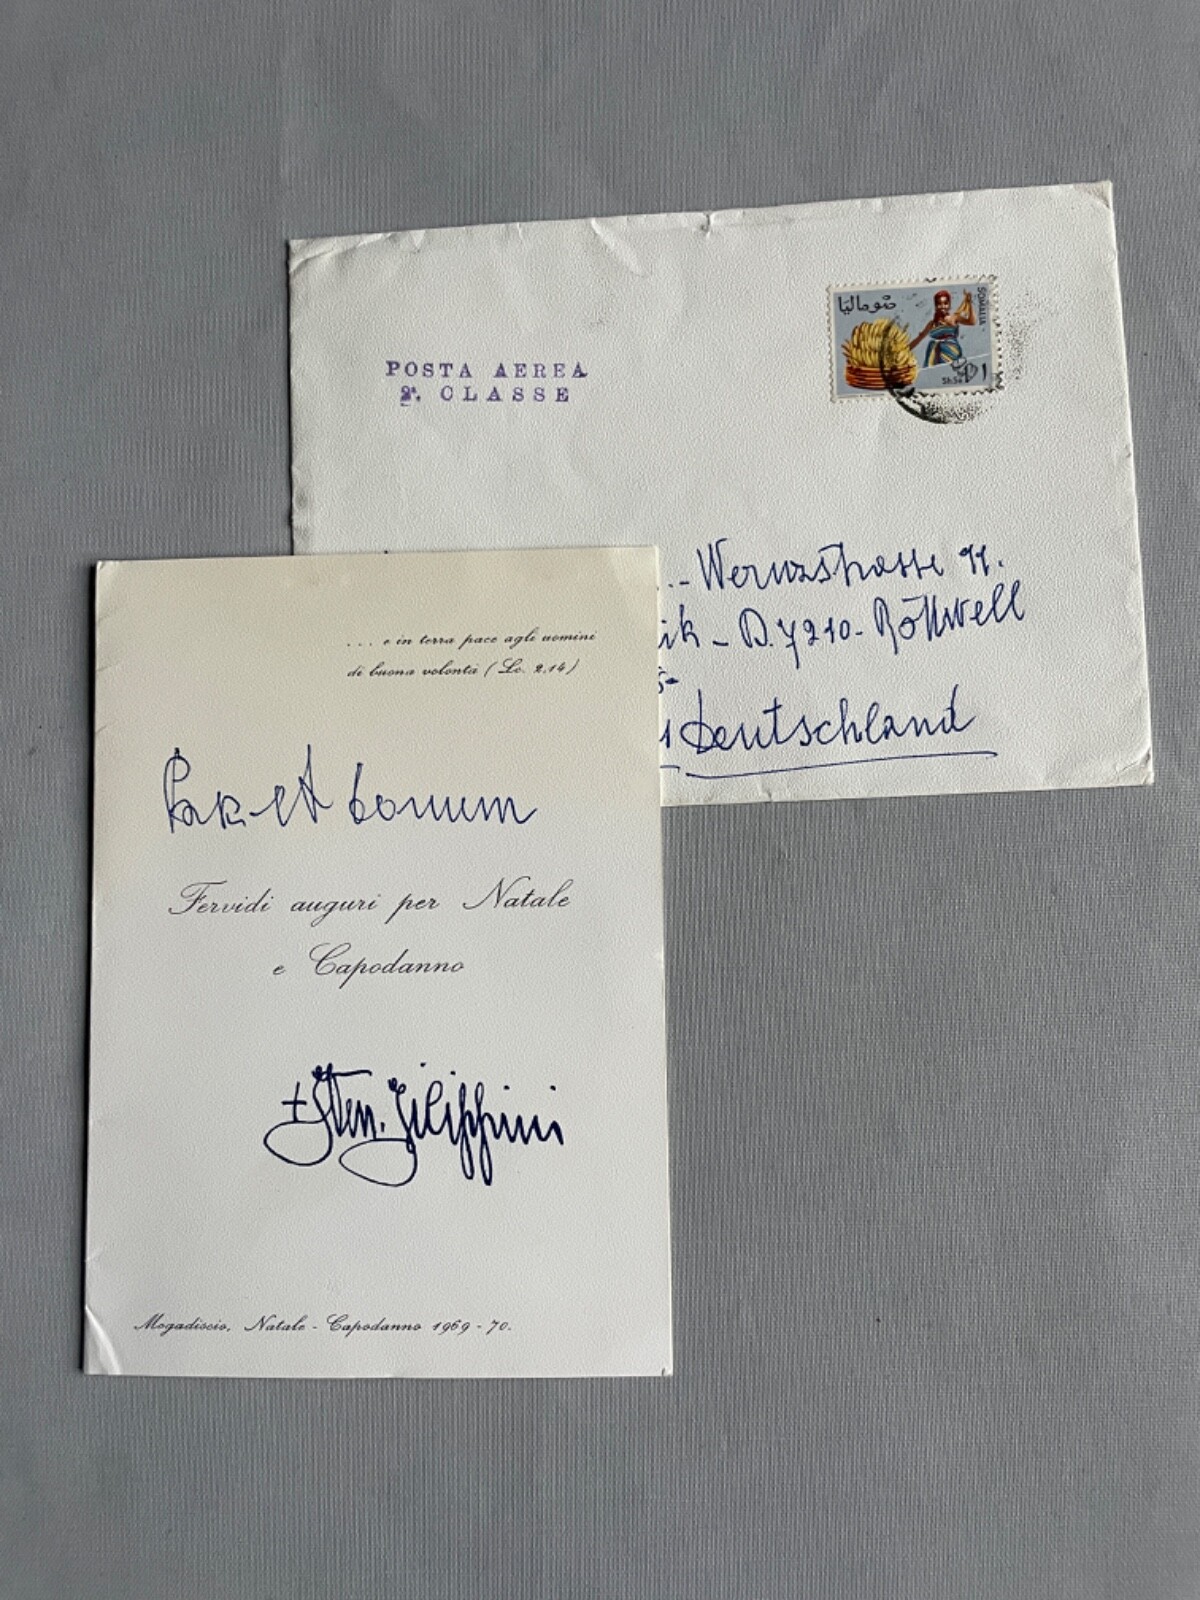 صوماليا
SOMALIA
Sh.So. 1 ١
POSTA AEREA
2ª. CLASSE
Wernzstrasse 11.
ik - D. 7210 - Rottwell
Deutschland
... e in terra pace agli uomini
di buona volontà (Lc. 2,14)
Pax et bonum
Fervidi auguri per Natale
e Capodanno
+ Fr Ven. Filippini
Mogadiscio, Natale - Capodanno 1969 - 70.